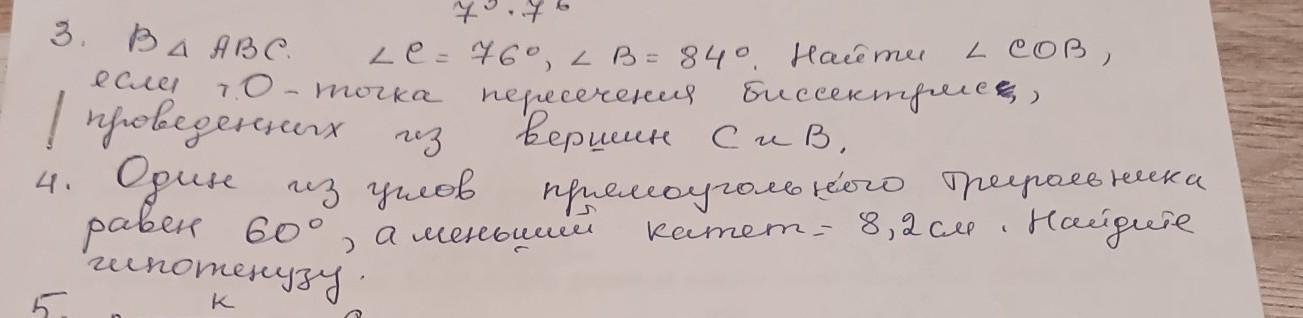 7⁵ · 7⁶
3. В △ ABC. ∠C = 76°, ∠B = 84°. Найти ∠COB,
если т.О - точка пересечения биссектрис,
проведенных из вершин С и В.
4. Один из углов прямоугольного треугольника
равен 60°, а меньший катет = 8,2 см. Найдите
гипотенузу.
5. к